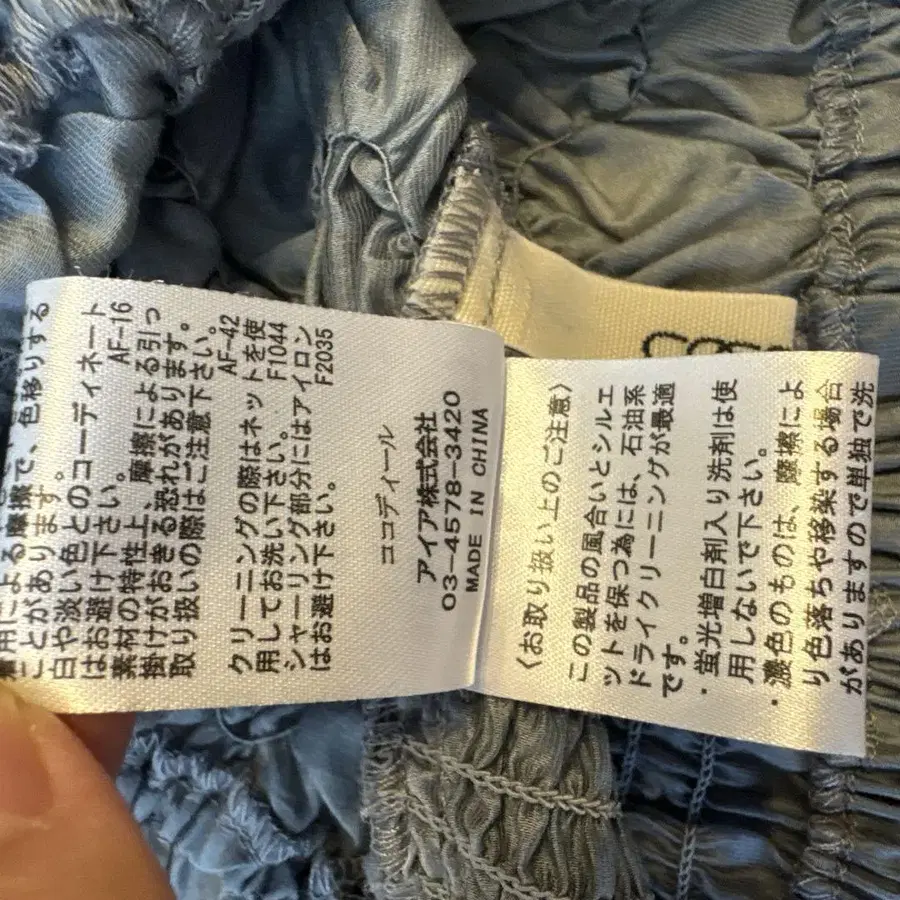 着用による摩擦で、色移りする
ことがあります。
白や淡い色とのコーディネート
はお避け下さい。 AF-16
素材の特性上、摩擦による引っ
掛けがおきる恐れがあります。
取り扱いの際はご注意下さい。
AF-42
クリーニングの際はネットを使
用してお洗い下さい。 F1044
シャーリング部分にはアイロン
はお避け下さい。 F2035
ココディール
アイア株式会社
03-4578-3420
MADE IN CHINA
〈お取り扱い上のご注意〉
この製品の風合いとシルエ
ットを保つ為には、石油系
ドライクリーニングが最適
です。
・蛍光増白剤入り洗剤は使
用しないで下さい。
・濃色のものは、摩擦によ
り色落ちや移染する場合
がありますので単独で洗